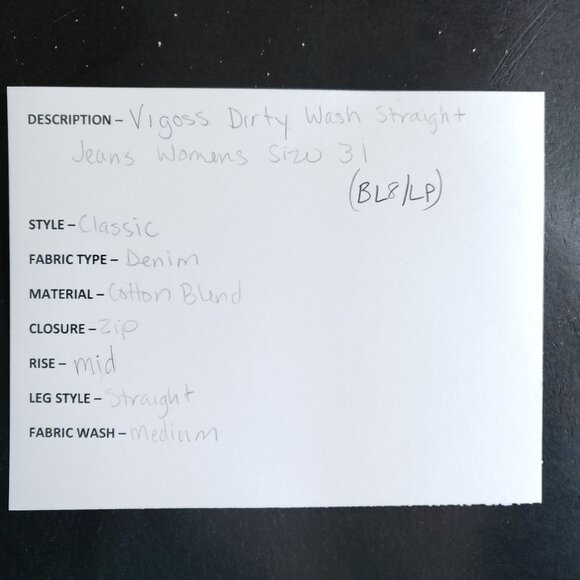 DESCRIPTION – Vigoss Dirty Wash Straight
Jeans Womens Size 31
(BL8/LP)
STYLE – Classic
FABRIC TYPE – Denim
MATERIAL – Cotton Blend
CLOSURE – Zip
RISE – mid
LEG STYLE – Straight
FABRIC WASH – Medium